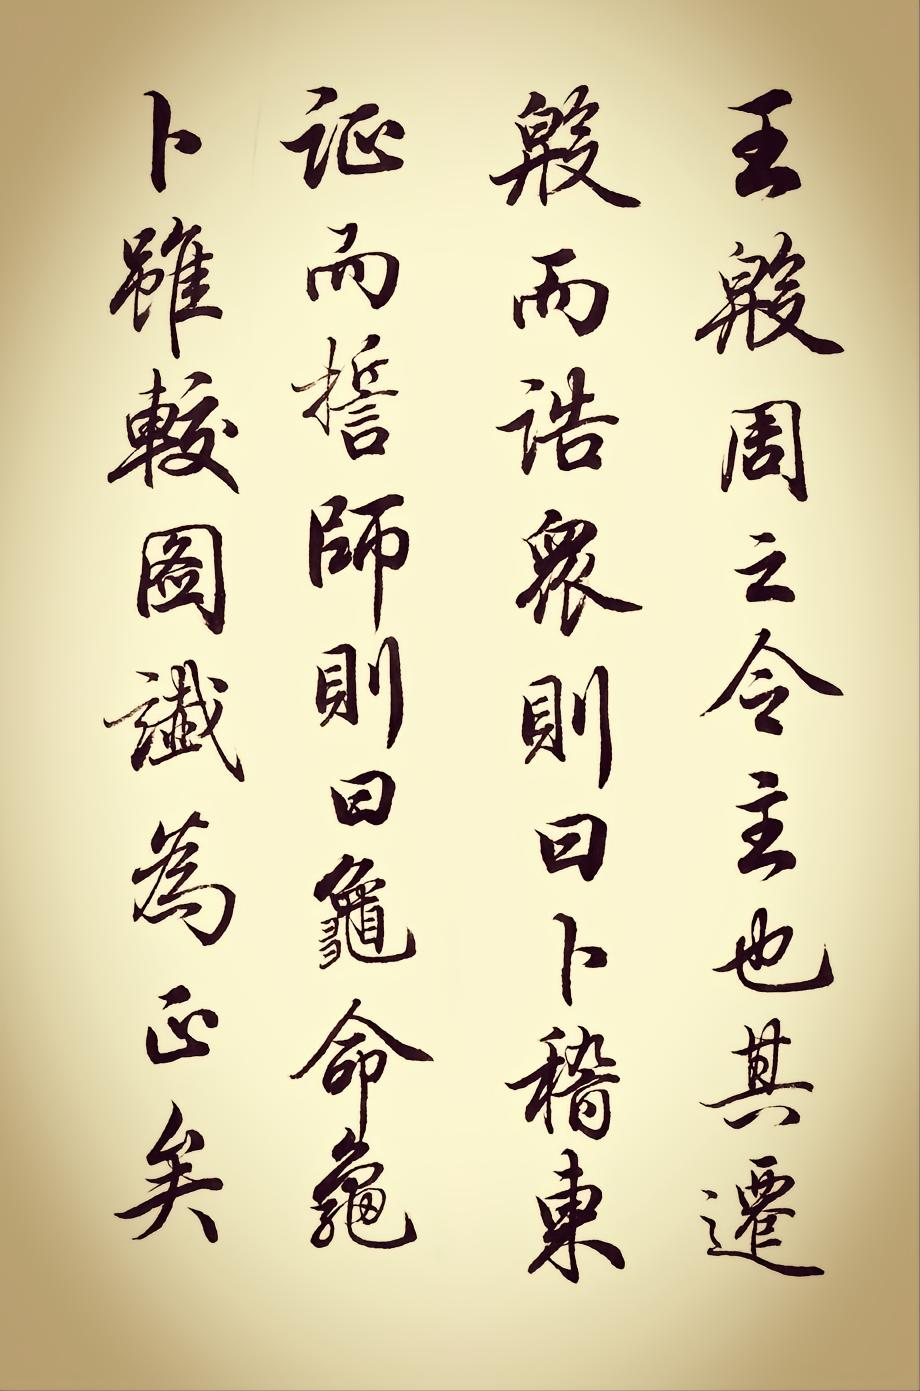 王殷周之令主也其遷
殷而誥衆則曰卜稽東
証而誓師則曰龜命龜
卜雖較圖讖為正矣